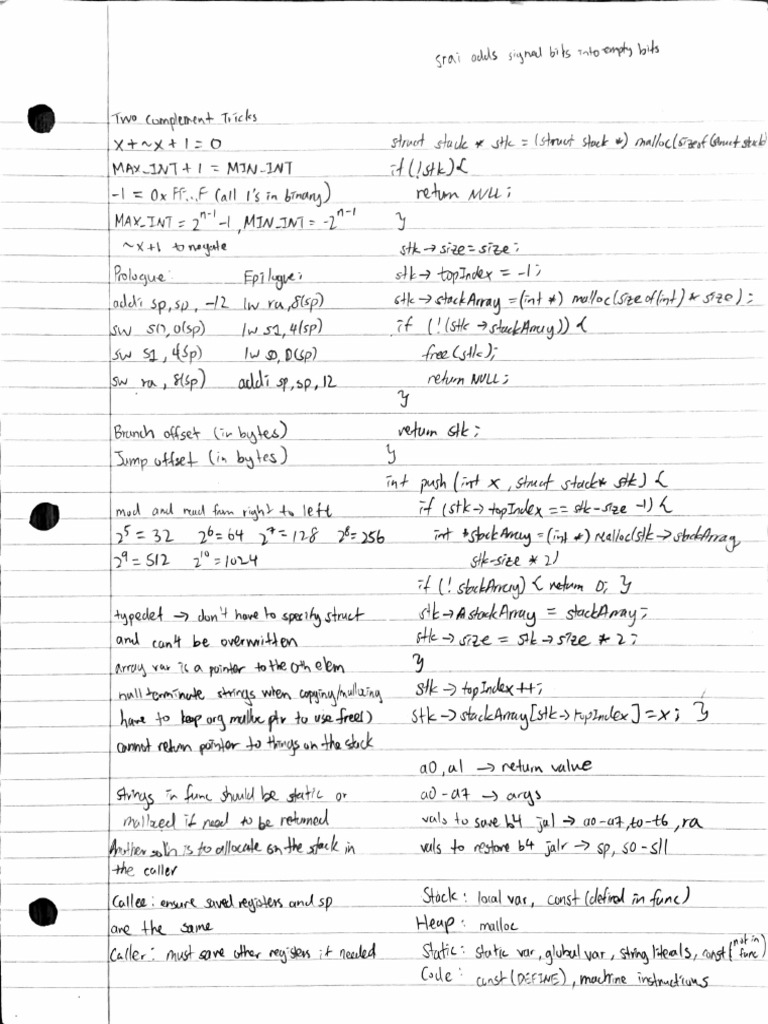 srai adds signal bits into empty bits
Two Complement Tricks
x + ~x + 1 = 0
MAX_INT + 1 = MIN_INT
-1 = 0xFF...F (all 1's in binary)
MAX_INT = 2^n-1 -1, MIN_INT = -2^n-1
~x+1 to negate
Prologue: Epilogue:
addi sp, sp, -12 lw ra, 8(sp)
sw s0, 0(sp) lw s1, 4(sp)
sw s1, 4(sp) lw s0, 0(sp)
sw ra, 8(sp) addi sp, sp, 12
Branch offset (in bytes)
Jump offset (in bytes)
mod and read from right to left
2^5 = 32 2^6 = 64 2^7 = 128 2^8 = 256
2^9 = 512 2^10 = 1024
typedef → don't have to specify struct
and can't be overwritten
array var is a pointer to the 0th elem
null terminate strings when copying/mallocing
have to keep org malloc ptr to use free()
cannot return pointer to things on the stack
strings in func should be static or
malloced if need to be returned
Another soln is to allocate on the stack in
the caller
Callee: ensure saved registers and sp
are the same
Caller: must save other registers if needed
struct stack * stk = (struct stack *) malloc(sizeof(struct stack)
if (!stk) {
return NULL;
}
stk → size = size;
stk → topIndex = -1;
stk → stackArray = (int *) malloc(sizeof(int) * size);
if (!(stk → stackArray)) {
free(stk);
return NULL;
}
return stk;
}
int push (int x, struct stack* stk) {
if (stk → topIndex == stk-size -1) {
int *stackArray = (int *) realloc(stk → stackArray,
stk-size * 2)
if (! stackArray) { return 0; }
stk → stackArray = stackArray;
stk → size = stk → size * 2;
}
stk → topIndex ++;
stk → stackArray[stk → topIndex] = x; }
a0, a1 → return value
a0 - a7 → args
vals to save b4 jal → a0-a7, t0-t6, ra
vals to restore b4 jalr → sp, s0 - s11
Stack: local var, const (defined in func)
Heap: malloc
Static: static var, global var, string literals, const (not in func)
Code: const (DEFINE), machine instructions